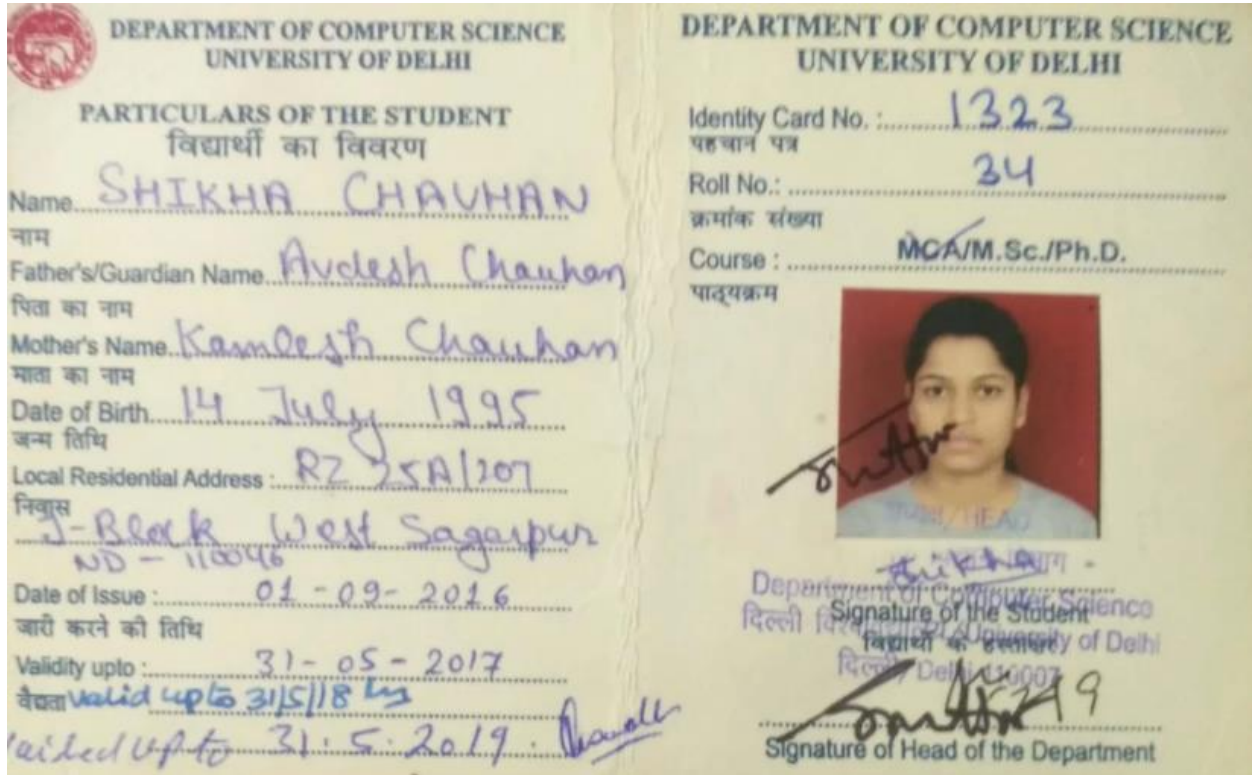 DEPARTMENT OF COMPUTER SCIENCE
UNIVERSITY OF DELHI
PARTICULARS OF THE STUDENT
विद्यार्थी का विवरण
Name SHIKHA CHAUHAN
नाम
Father's/Guardian Name Avdesh Chauhan
पिता का नाम
Mother's Name Kamlesh Chauhan
माता का नाम
Date of Birth 14 July 1995
जन्म तिथि
Local Residential Address : RZ 25A/207
निवास
J-Block West Sagarpur
ND - 110046
Date of Issue : 01-09-2016
जारी करने की तिथि
Validity upto : 31-05-2017
वैद्यता valid upto 31/5/18
upto 31.5.2019.
DEPARTMENT OF COMPUTER SCIENCE
UNIVERSITY OF DELHI
Identity Card No. : 1323
पहचान पत्र
Roll No.: 34
क्रमांक संख्या
Course : MCA/M.Sc./Ph.D.
पाठ्यक्रम
/HEAD
Shikha
Department of Computer Science
Signature of the Student
दिल्ली University of Delhi
विद्यार्थी के हस्ताक्षर
Delhi-110007
Signature of Head of the Department